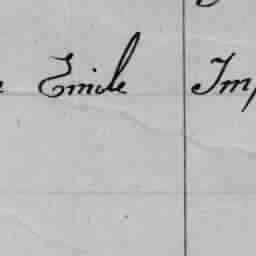 Emile Imp